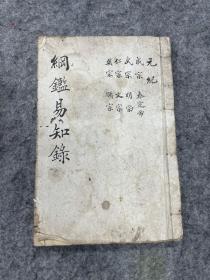 元紀
成宗 泰定帝
武宗 明宗
仁宗 文宗
英宗
綱鑑易知錄